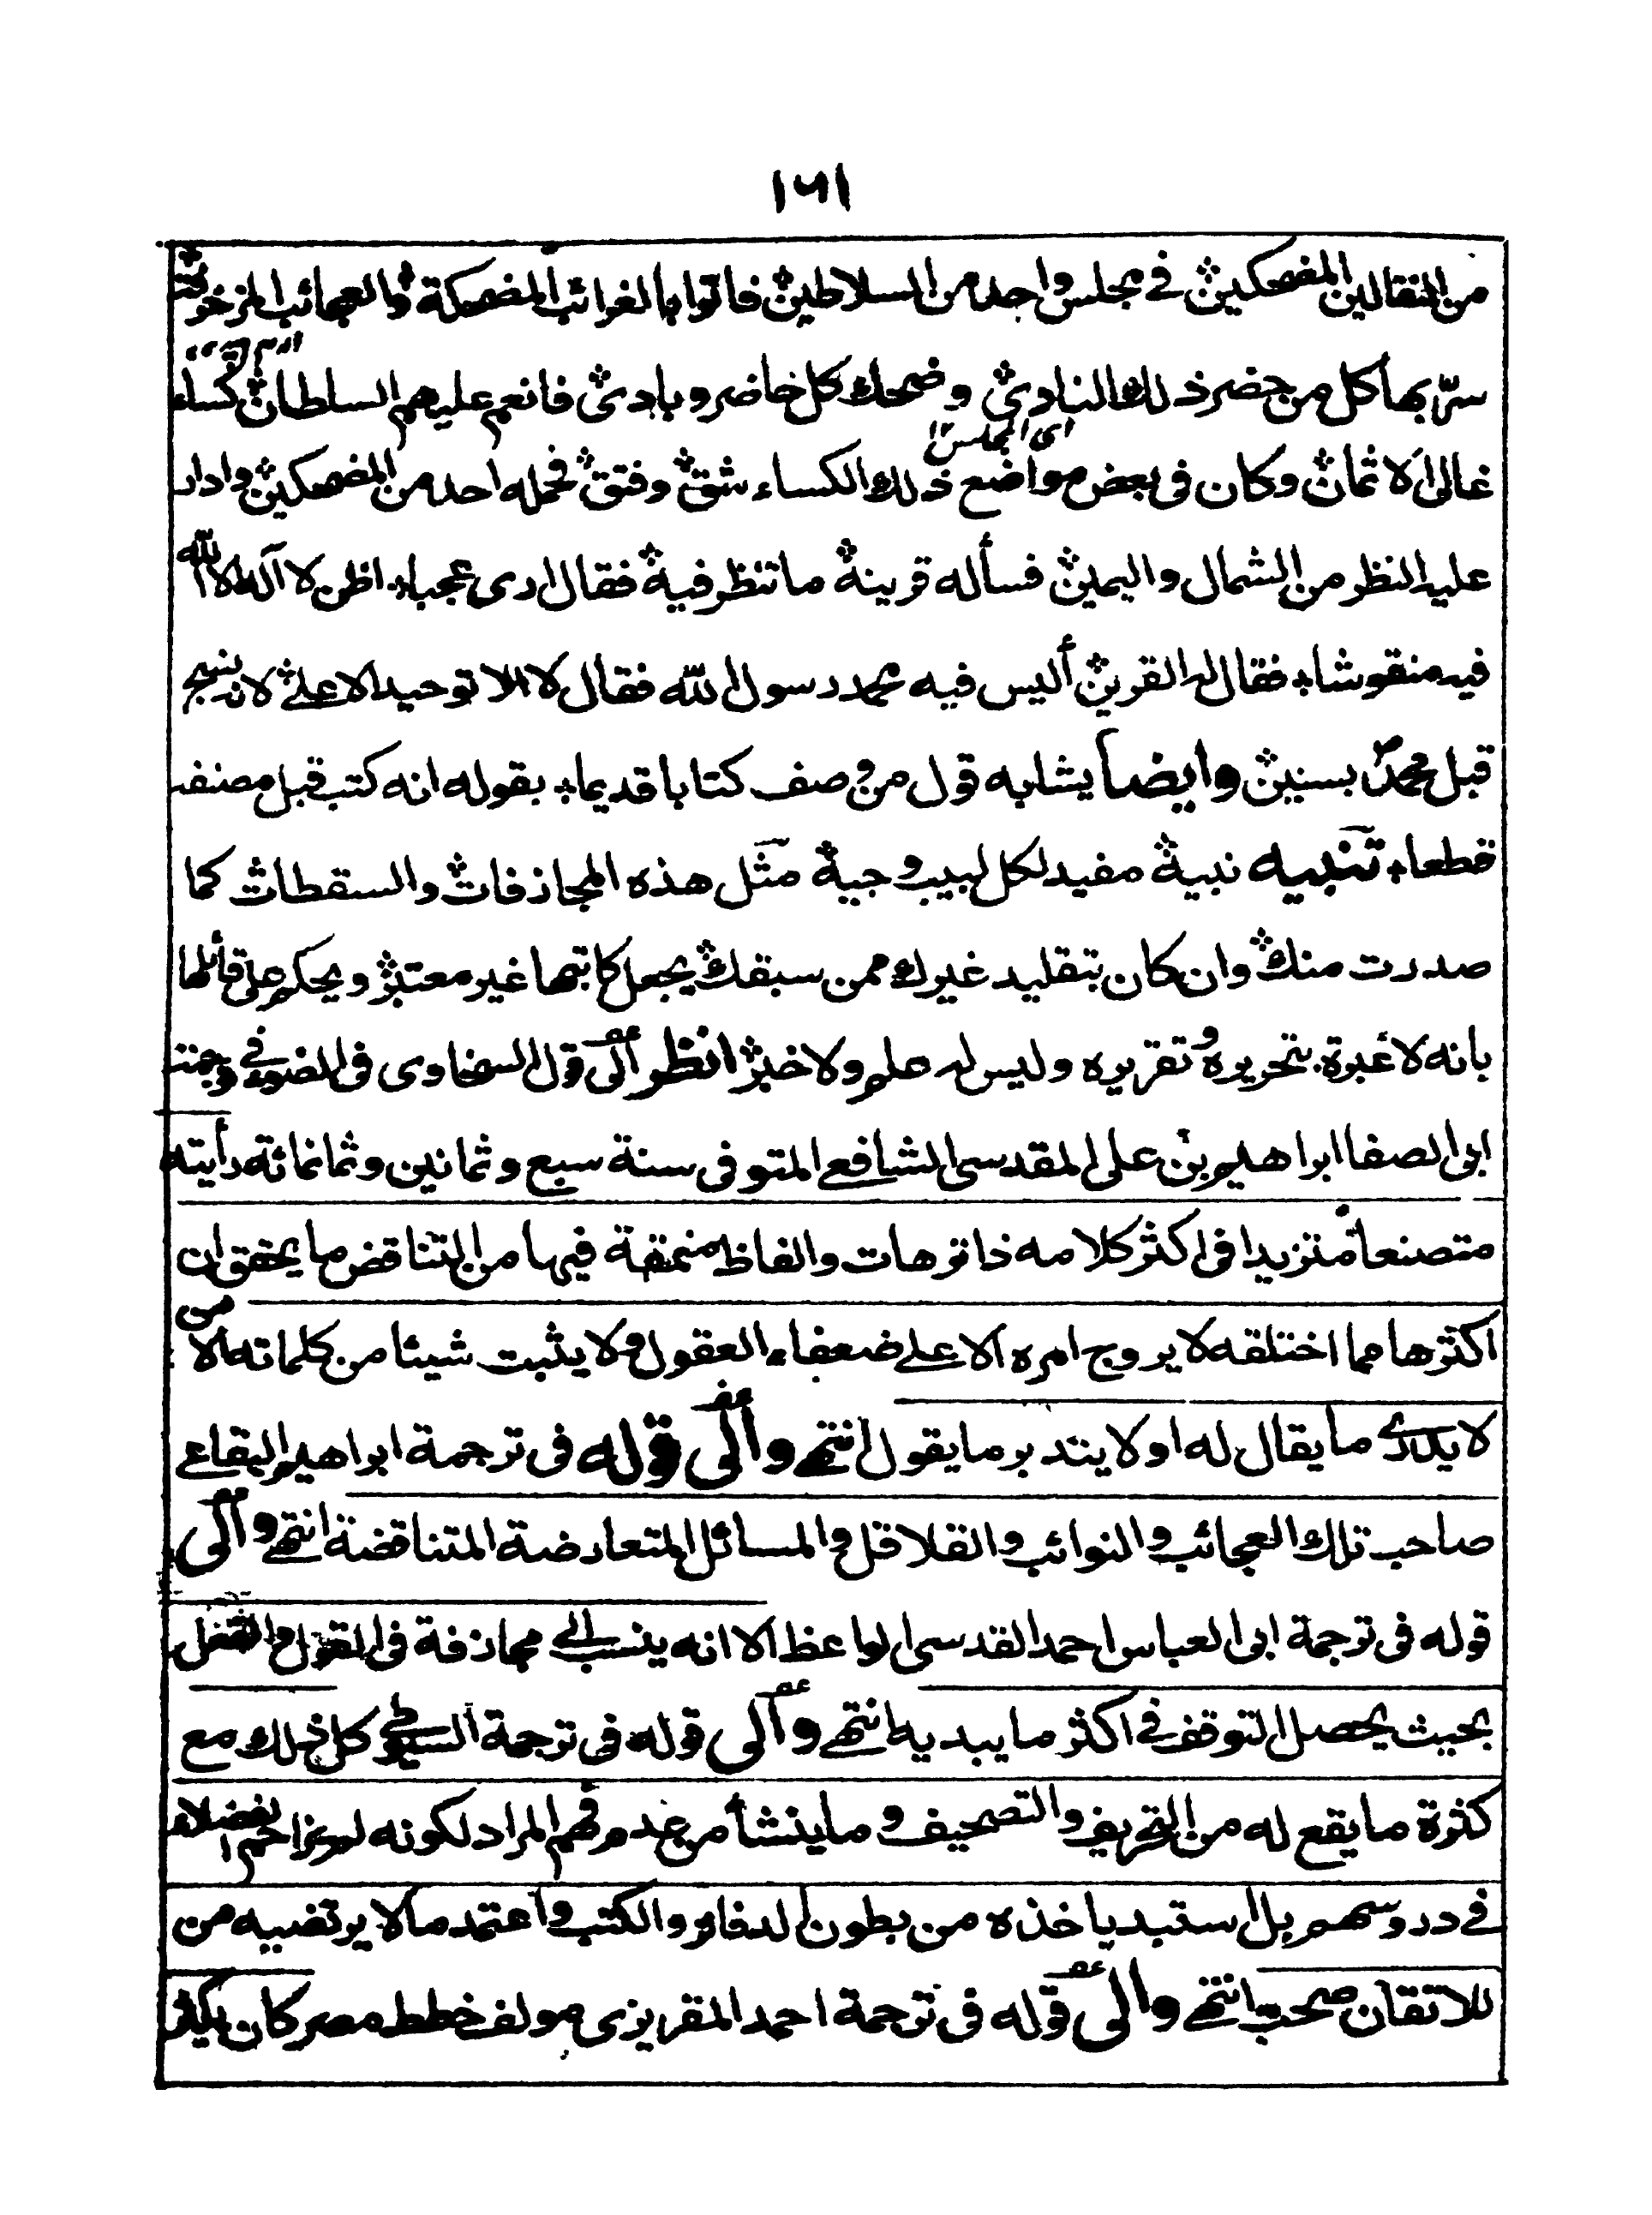 ١٦١
من النقالين المضحكين في مجلس واحد من السلاطين فاتوا بالغرائب المضحكة والعجائب المزخرفة
سرّ بها كل من حضر ذلك النادي وضحك كل حاضر وبادي فانعم عليهم السلطان كساء
اى المجلس
غالى الاثمان وكان فى بعض مواضع ذلك الكساء شق وفتق فحمله احد من المضحكين وادار
عليه النظر من الشمال واليمين فسأله قرينه ما تنظر فيه فقال ارى عجبا اظن لا آله الا الله
فيه منقوشا فقال له القرين أليس فيه محمد رسول الله فقال لا الا توحيد الاعلى لانه نسج
قبل محمدؐ بسنين وايضا يشابه قول من وصف كتابا قديما بقوله انه كتب قبل مصنفه
قطعا تنبيه نبيه مفيد لكل لبيب وجيه مثل هذه المجازفات والسقطات كما
صدرت منك وان كان بتقليد غيرك ممن سبقك يجعل كاتبها غير معتبر ويحكم على قائلها
بانه لا عبرة بتحريره وتقريره وليس له علم ولا خبر انظر الى قول السخاوى فى الضوء في ترجمة
ابى الصفا ابراهيم بن على المقدسى الشافعى المتوفى سنة سبع وثمانين وثمانمائة رأيته
متصنعا متزيدا فى اكثر كلامه ذا ترهات والفاظ منمقة فيها من التناقض ما يحقق ان
اكثرها مما اختلقه لا يروج امره الا على ضعفاء العقول ولا يثبت شيئا من كلماته الا من
لا يدرى ما يقال له او لا يتدبر ما يقول انتهى والى قوله فى ترجمة ابراهيم البقاعى
صاحب تلك العجائب والنوائب والقلاقل والمسائل المتعارضة المتناقضة انتهى والى
قوله فى ترجمة ابى العباس احمد القدسى الواعظ الا انه ينسب الى مجازفة فى القول والنقل
بحيث يحصل التوقف في اكثر ما يبديه انتهى والى قوله فى ترجمة السيوطى كل ذلك مع
كثرة ما يقع له من التحريف والتصحيف وما ينشأ من عدم فهم المراد لكونه لم يزاحم الفضلاء
في دروسهم بل استبد ياخذه من بطون الدفاتر والكتب واعتمد ما لا يرتضيه من
للاتقان صحب انتهى والى قوله فى ترجمة احمد المقريزى مولف خطط مصر كان يكثر